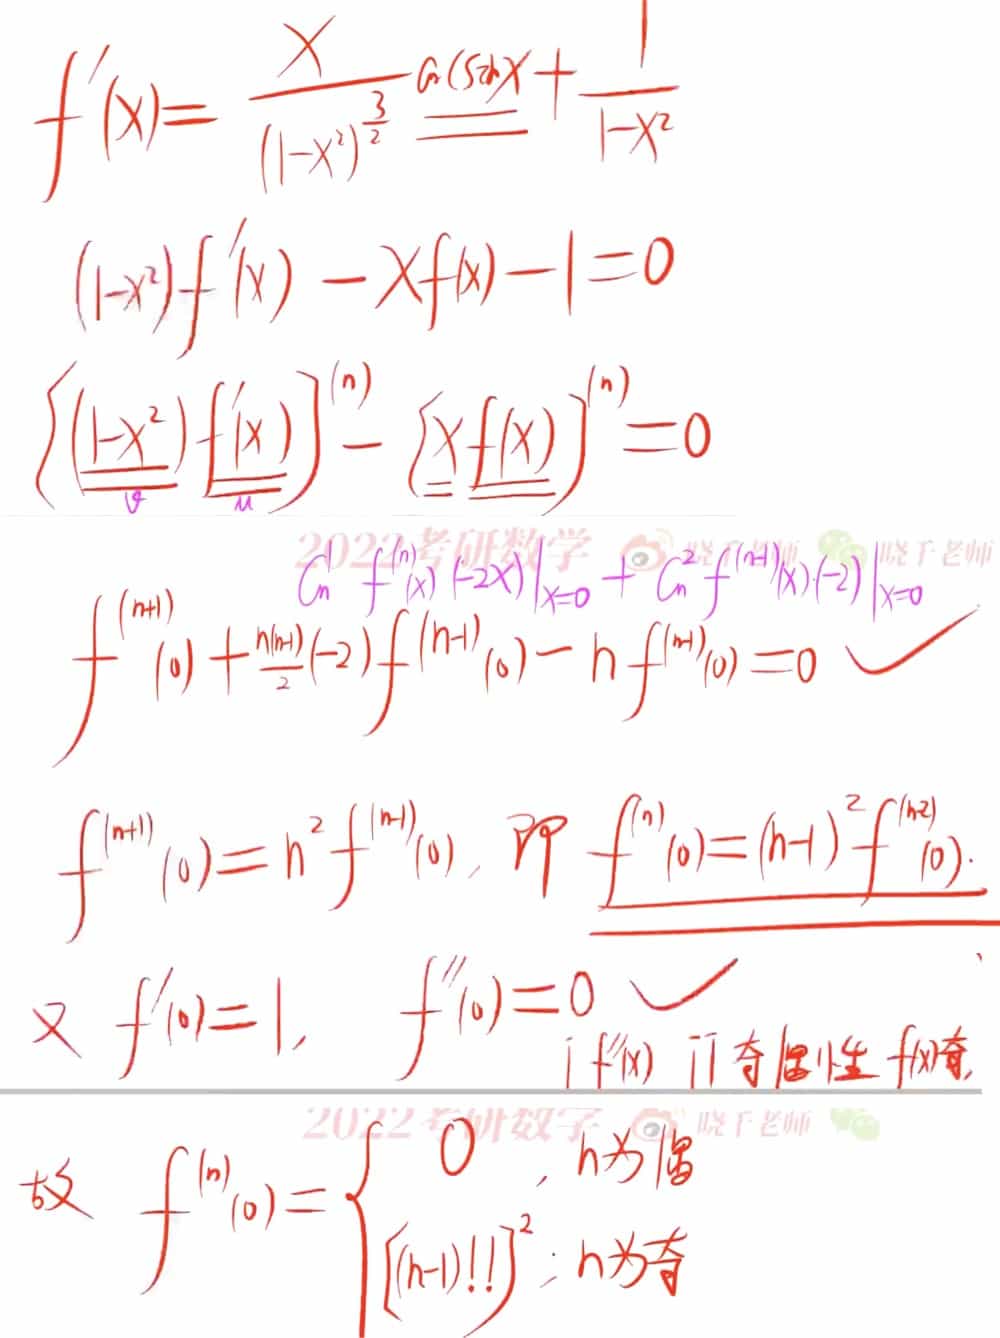 f'(x)= x/(1-x²)^(3/2) arcsinx + 1/(1-x²)
(1-x²)f'(x) - xf(x) - 1 = 0
[(1-x²)f'(x)]^(n) - [xf(x)]^(n) = 0
v u
2022考研数学 晓千老师 晓千老师
C_n^1 f^(n)(x)(-2x)|_(x=0) + C_n^2 f^(n-1)(x)·(-2)|_(x=0)
f^(n+1)(0) + n(n-1)/2 (-2)f^(n-1)(0) - nf^(n-1)(0) = 0 ✓
f^(n+1)(0) = n²f^(n-1)(0), 即 f^(n)(0) = (n-1)²f^(n-2)(0).
又 f'(0)=1, f''(0)=0 ✓
i f''(x) ii 奇偶性 f(x)奇,
2022考研数学 晓千老师
故 f^(n)(0) = { 0, n为偶
[(n-1)!!]²; n为奇